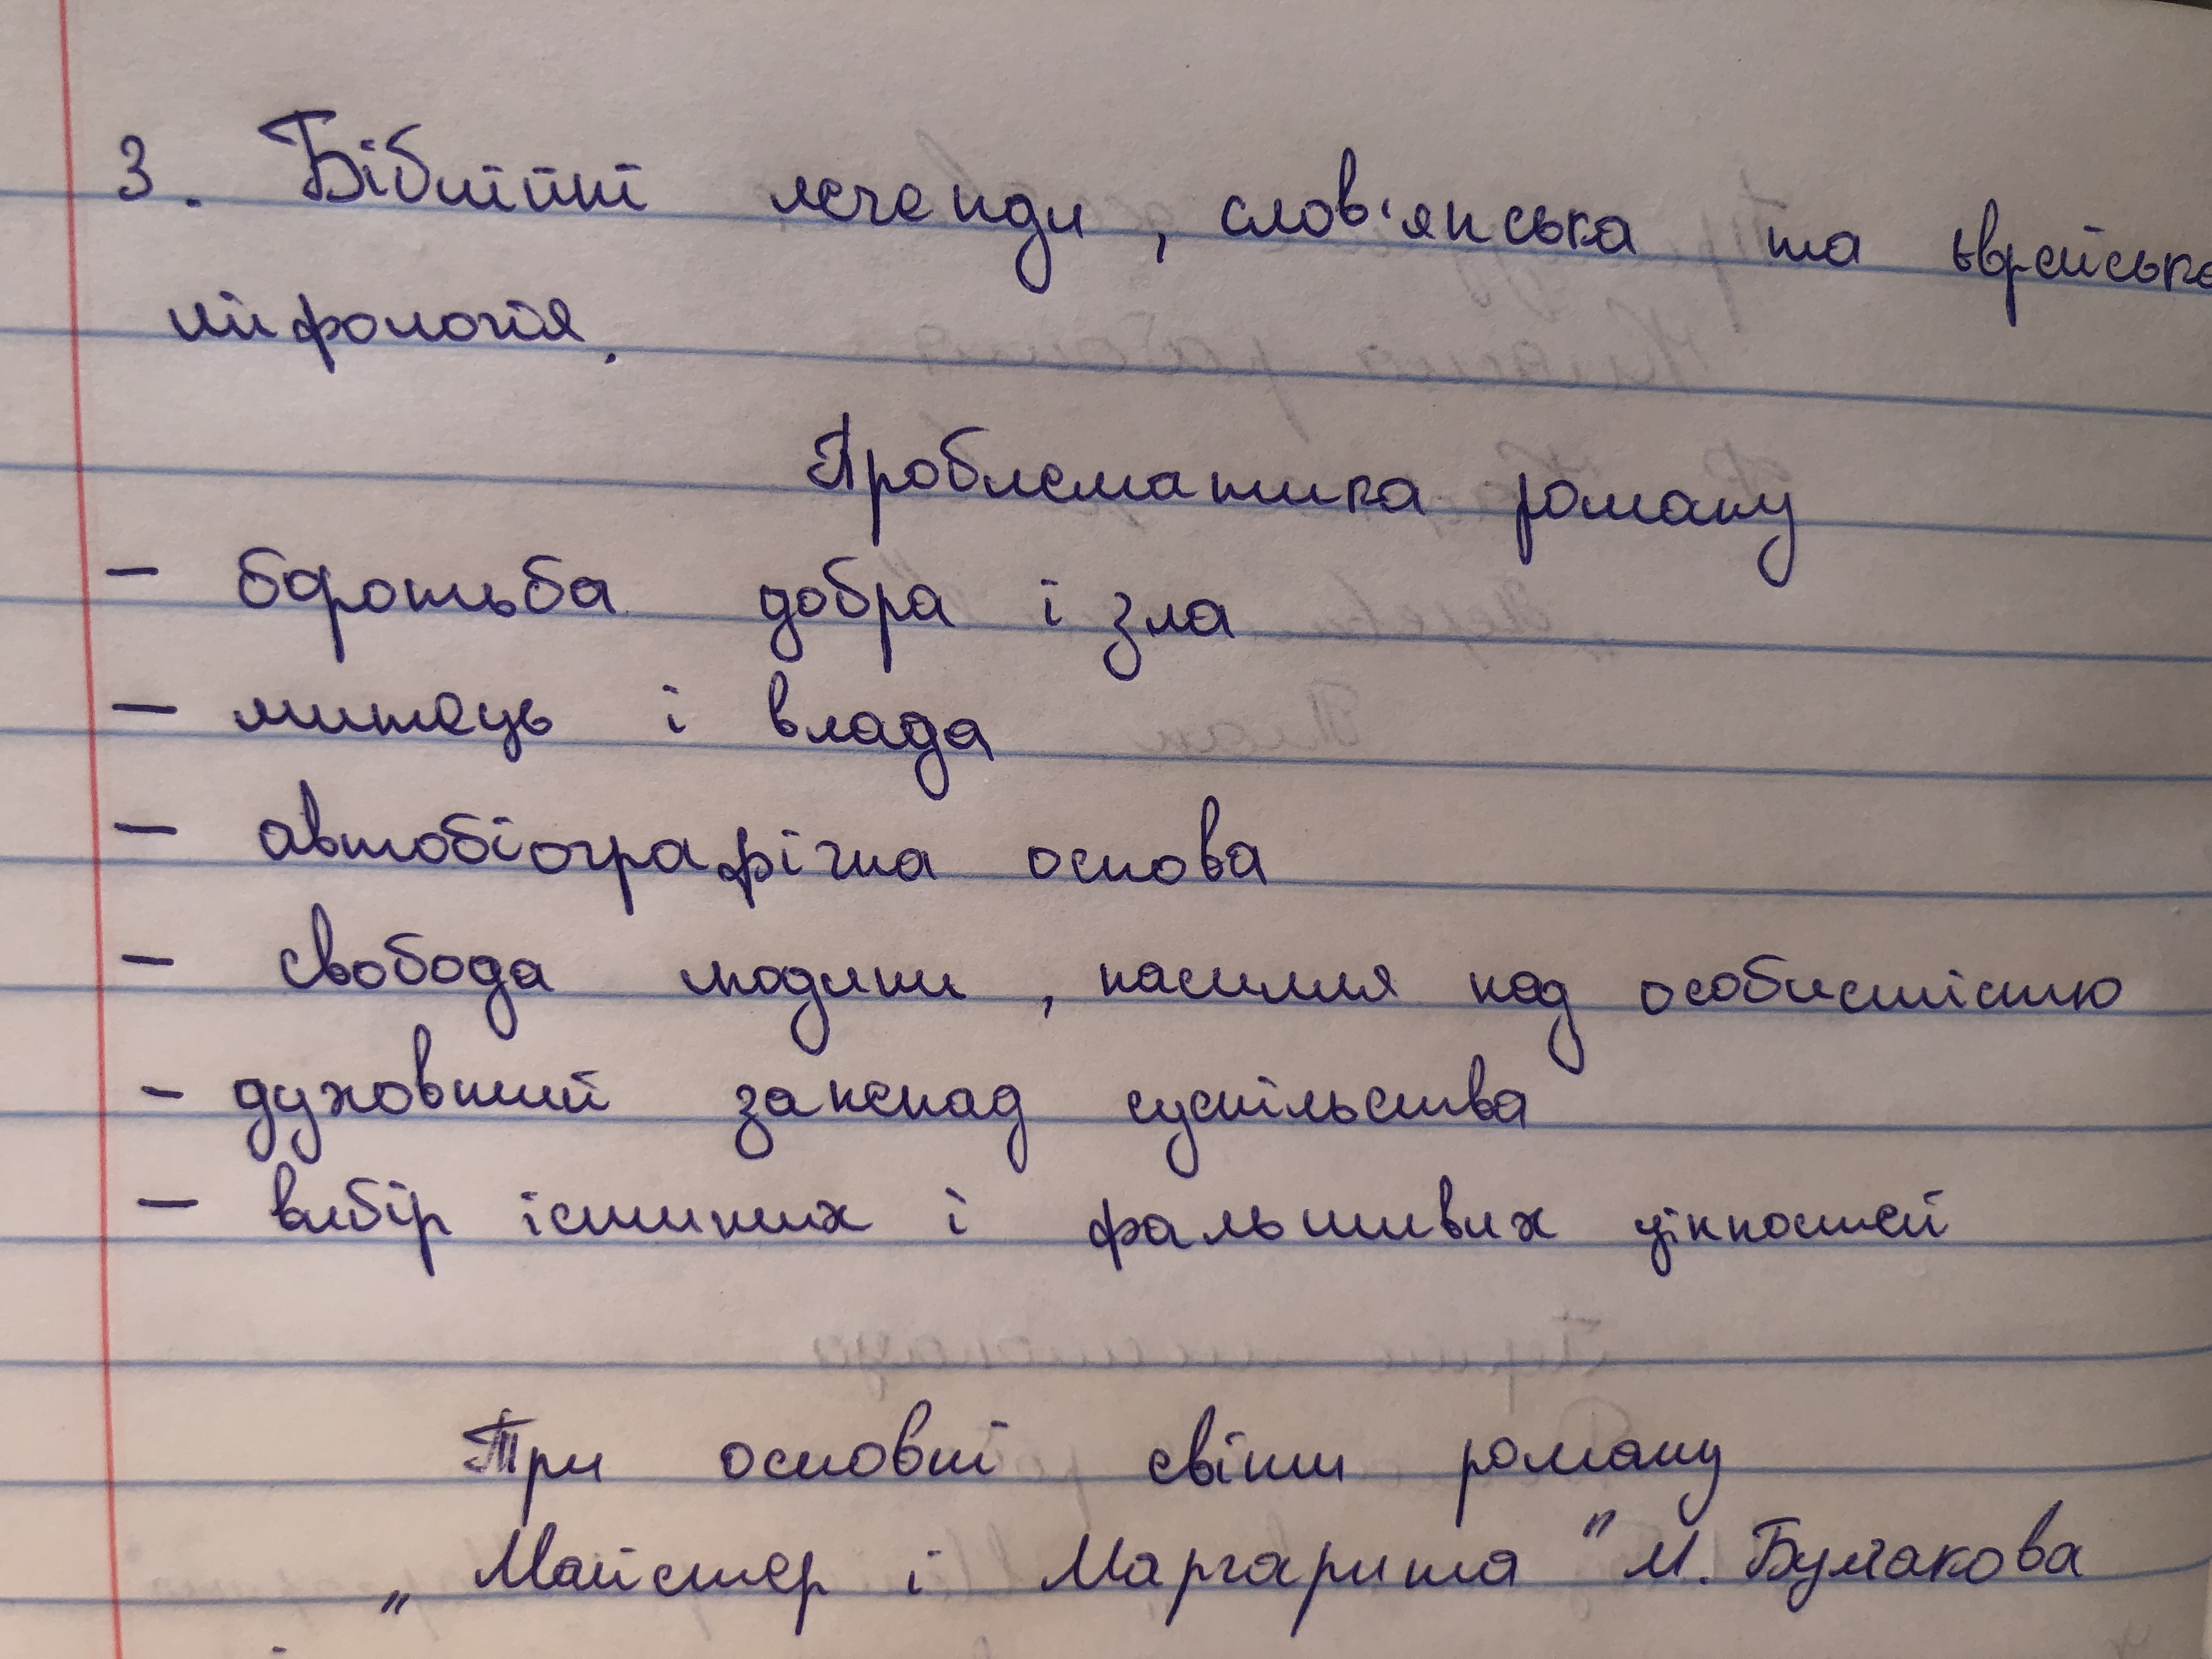 3. Біблійні легенди, слов'янська та єврейська
міфологія.
Проблематика роману
- боротьба добра і зла
- митець і влада
- автобіографічна основа
- свобода людини, насилля над особистістю
- духовний занепад суспільства
- вибір істиних і фальшивих цінностей
Три основні світи роману
„Майстер і Маргарита" М. Булгакова